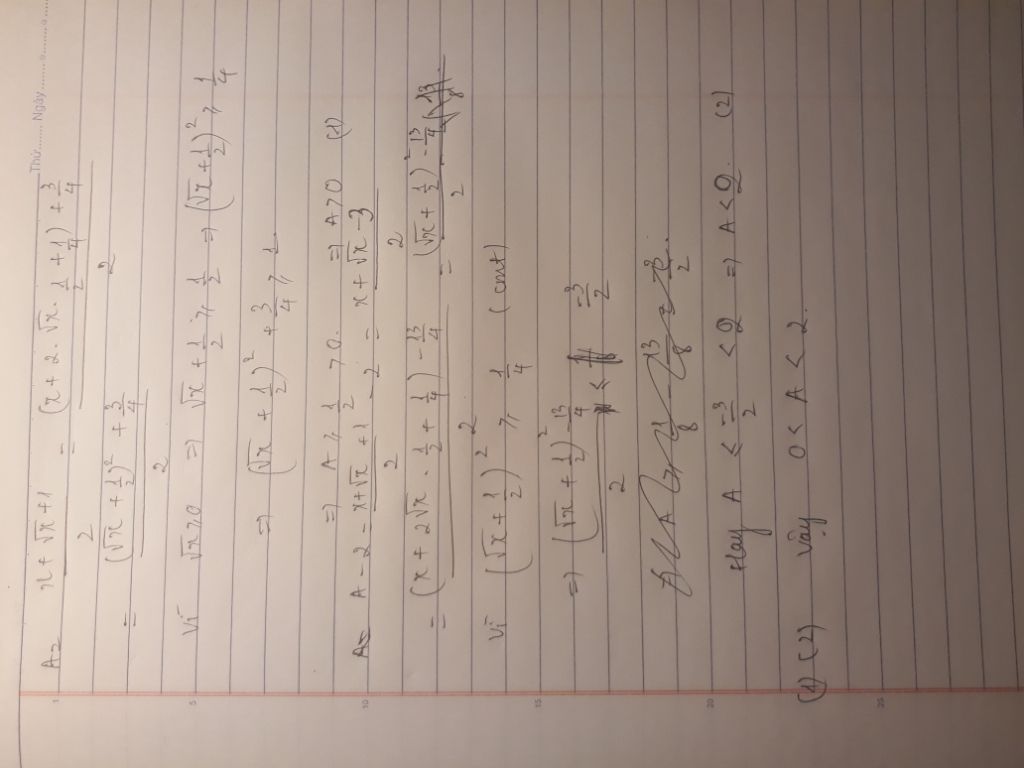 Thứ....... Ngày...........
A = x + √x + 1 / 2 = (x + 2 . √x . 1/2 + 1/4) + 3/4 / 2
= (√x + 1/2)² + 3/4 / 2
Vì √x ≥ 0 => √x + 1/2 ≥ 1/2 => (√x + 1/2)² ≥ 1/4
=> (√x + 1/2)² + 3/4 ≥ 1
=> A ≥ 1/2 > 0. => A > 0 (1)
A - 2 = x + √x + 1 / 2 - 2 = x + √x - 3 / 2
= (x + 2√x . 1/2 + 1/4) - 13/4 / 2 = (√x + 1/2)² - 13/4 / 2
Vì (√x + 1/2)² ≥ 1/4 (cmt)
=> (√x + 1/2)² - 13/4 / 2 < -3/2
Hay A < -3/2 < 2 => A < 2. (2)
(1) (2) Vậy 0 < A < 2.